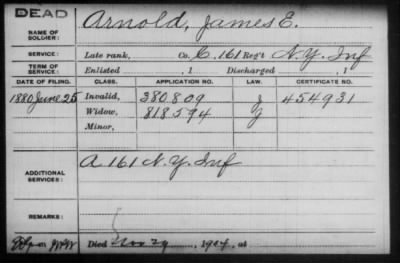 DEAD
NAME OF SOLDIER: Arnold, James E.
SERVICE: Late rank, Co. C, 161 Reg't N.Y. Inf
TERM OF SERVICE: Enlisted , 1 Discharged , 1
DATE OF FILING. CLASS. APPLICATION NO. LAW. CERTIFICATE NO.
1880 June 25 Invalid, 380809 J 454931
Widow, 818594 G
Minor,
ADDITIONAL SERVICES: A 161 N.Y. Inf
REMARKS:
Died Nov 29, 1904, at